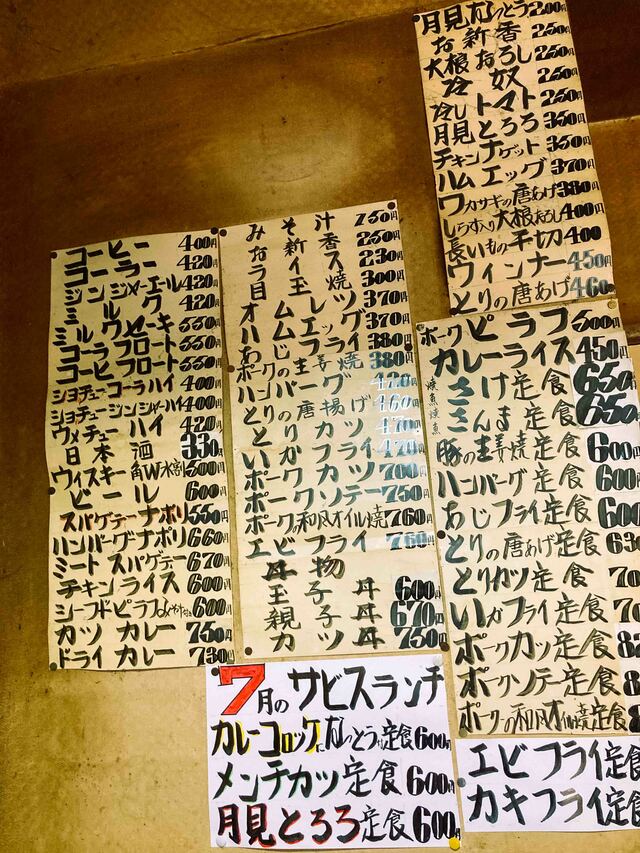 月見なっとう 200円
お新香 250円
大根おろし 250円
冷奴 250円
冷しトマト 250円
月見とろろ 350円
チキンナゲット 350円
ハムエッグ 370円
ワカサギの唐あげ 380円
しらす入り大根おろし 400円
長いもの千切 400
ウィンナー 450円
とりの唐あげ 460円
コーヒー 400円
コーラー 420円
ジンジャーエール 420円
ミルク 420円
ミルクセーキ 550円
コーラフロート 550円
コーヒフロート 550円
ショチューコーラハイ 400円
ショチュージンジャーハイ 400円
ウメチューハイ 420円
日本酒 330円
ウィスキー角W水割 500円
ビール 600円
スパゲテーナポリ 550円
ハンバーグナポリ 660円
ミートスパゲテー 670円
チキンライス 600円
シーフドピラフ 600円
カツカレー 750円
ドライカレー 730円
みそ汁 150円
お新香 250円
ライス 230円
目玉焼 300円
オムレツ 370円
ハムエッグ 370円
あじフライ 380円
ポーク生姜焼 380円
ハンバーグ 420円
とりの唐揚げ 460円
とりカツ 470円
いかフライ 470円
ポークカツ 700円
ポークソテー 750円
ポーク和風オイル焼 760円
エビフライ 760円
丼物
玉子丼 600円
親子丼 670円
カツ丼 750円
ポークピラフ 500円
カレーライス 450円
焼魚 さけ定食 650
焼魚 さんま定食 650
豚の生姜焼定食 600円
ハンバーグ定食 600円
あじフライ定食 600
とりの唐あげ定食 630
とりカツ定食
いかフライ定食
ポークカツ定食
ポークソテー定食
ポークの和風オイル焼定食
7月のサビスランチ
カレーコロッケになっとう定食 600円
メンチカツ定食 600円
月見とろろ定食 600円
エビフライ定食
カキフライ定食